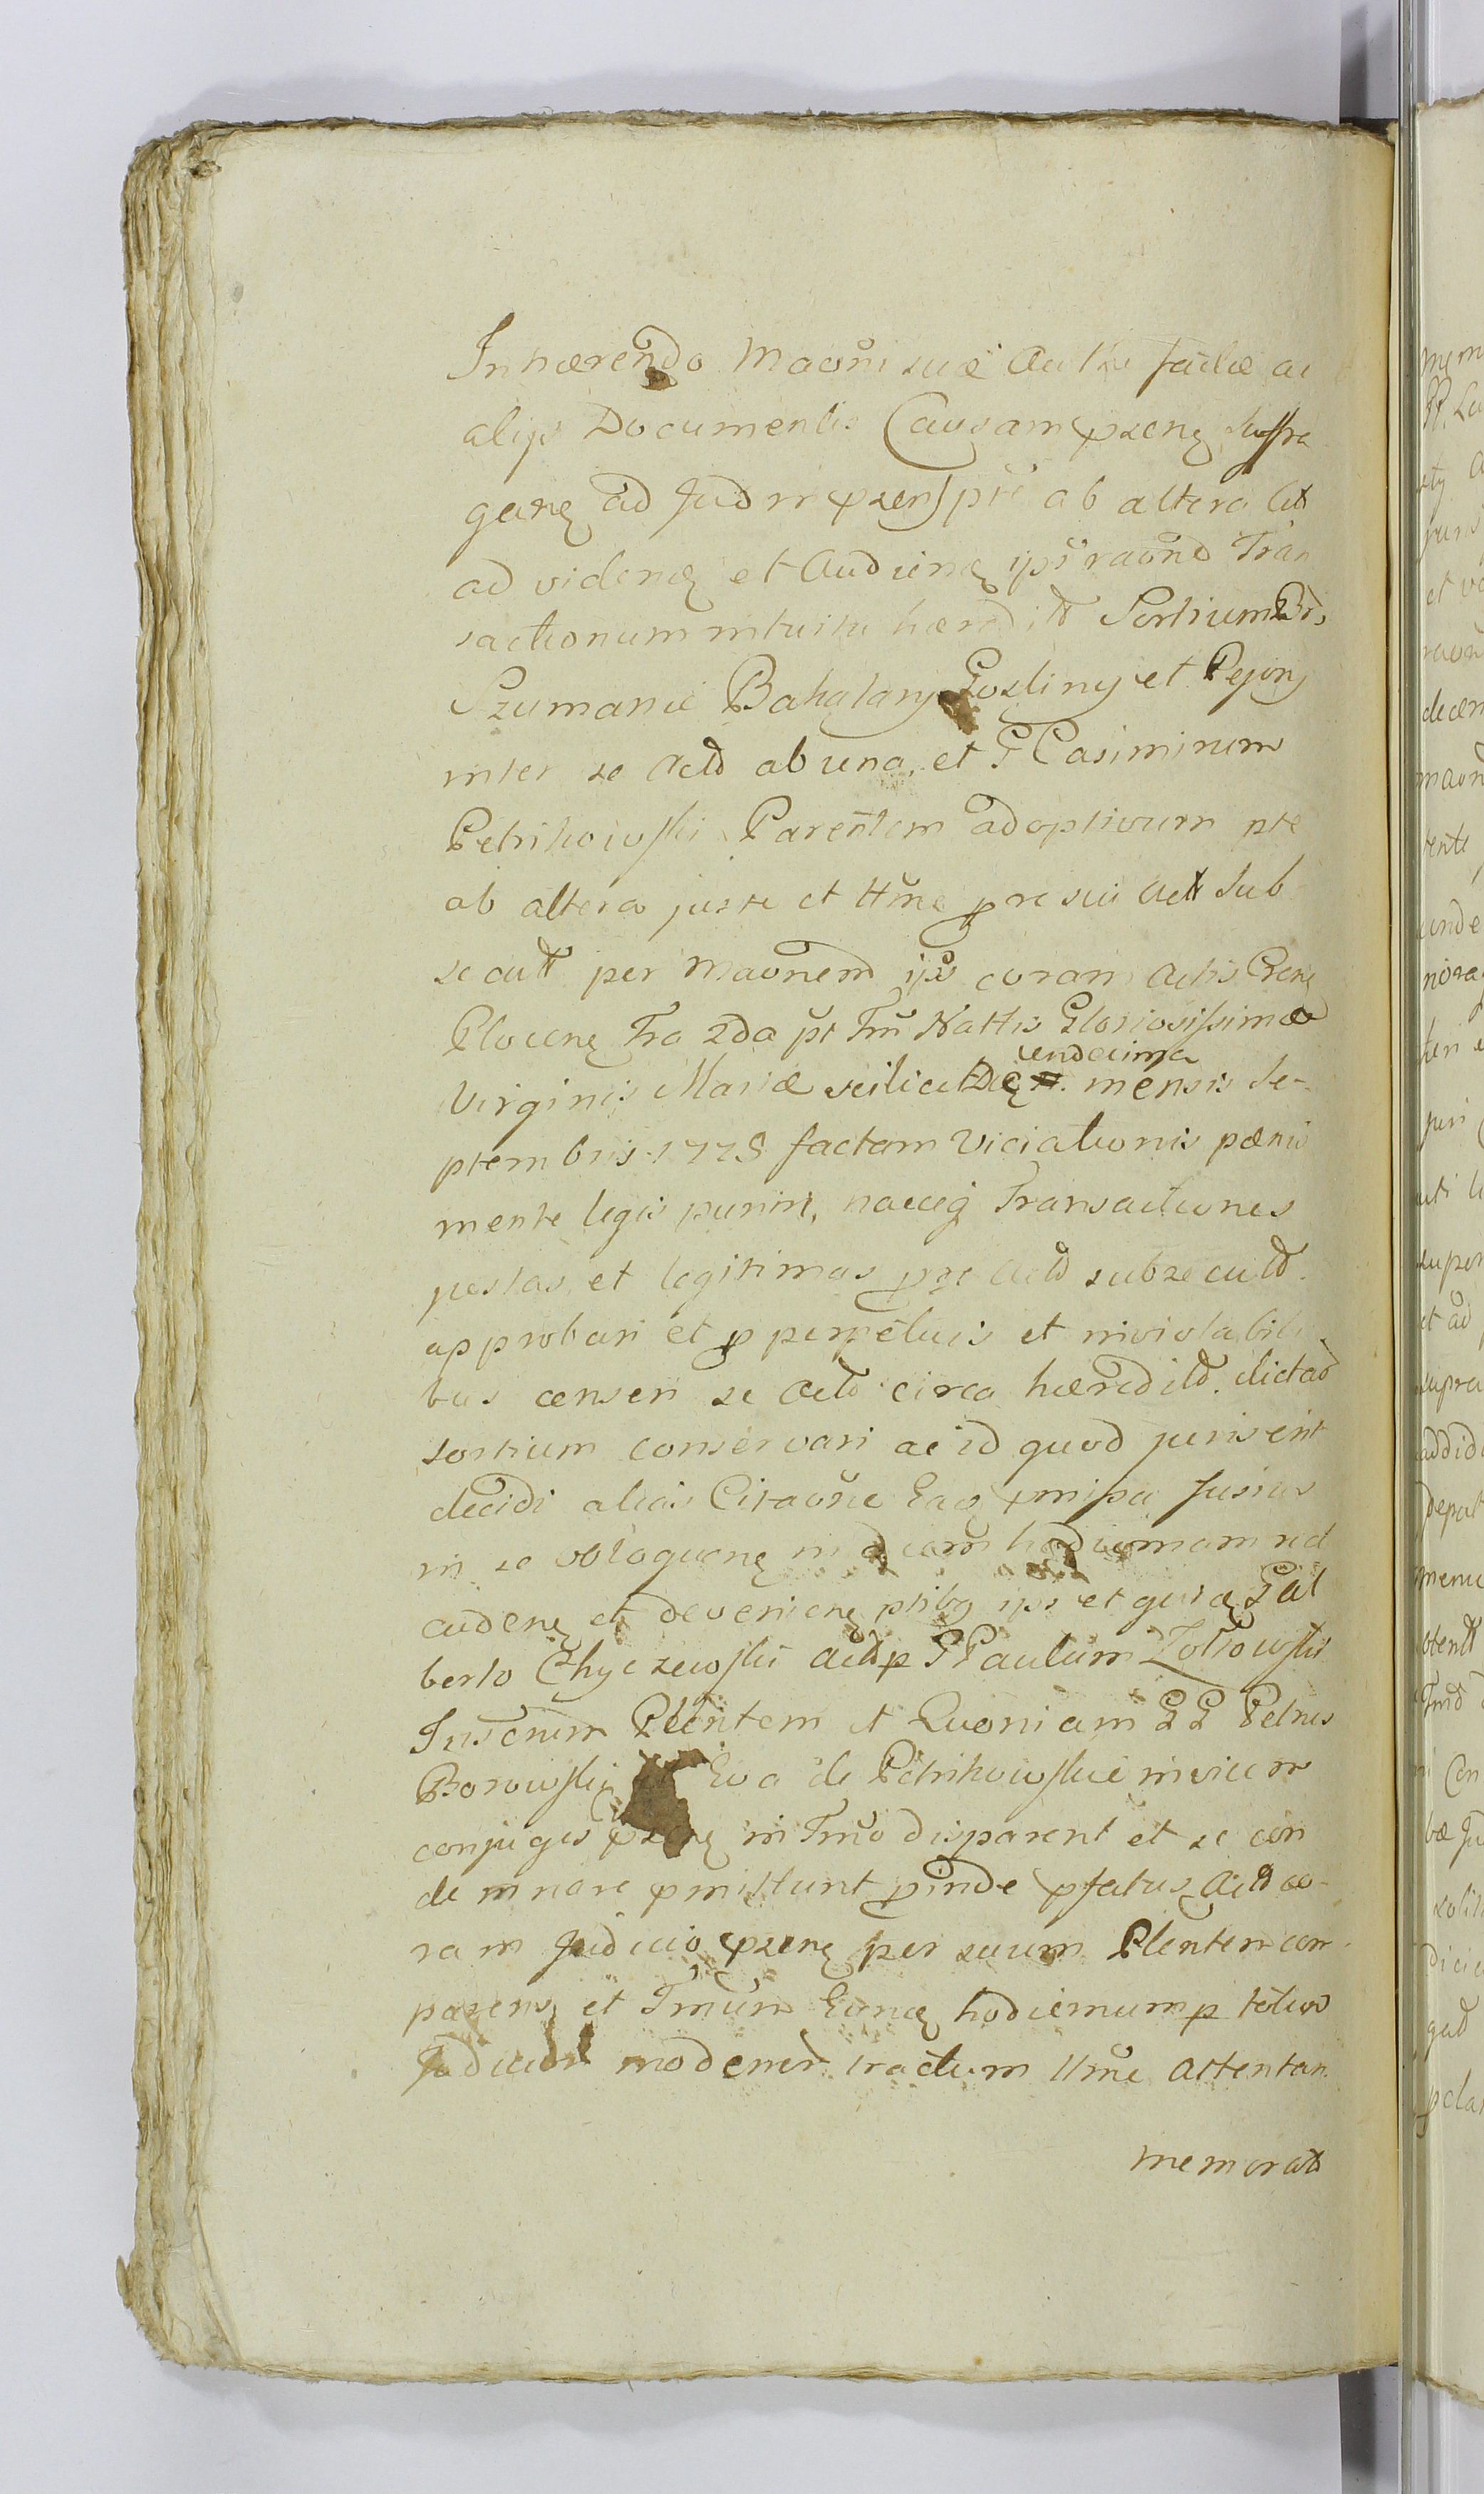 Inhærendo Maoni suæ Actis factæ ac
alijs Documentis Causam præsen suffra
gan ad Judm præsen pte ab altera Citt
ad viden et Audien ipsi raond Tran
sactionum intuitu hæredit Sortium Br,
Szumanie Bakalary Gozliny et Pejony
inter se Actt ab una, et G Casimirum
Petrikowski Parentem adoptivum pte
ab altera juste et ttme pre sui Actt Sub
secutt per maonem ips coram Actis Cren
Plocen Fra 2da pt Fm Nattis Gloriosissimæ
Virginis Mariæ scilicet Die undecima mensis Se-
ptembris 1778 factam Viciationis pænis
mente legis puniri, hacceq Transactiones
justas et legitimas pre Actt subsecutt.
approbari et p perpetuis et inviolabili
bus censeri se Actt circa hæreditt. dictar
sortium conservari ac id quod juris erit
decidi alias Citaone Eaq pmissa fusius
in se obloquen in diem hodiernam rid
caden et devenien ptibq ips et quia G al
berto Chyczewski Actt p G Paulum Zottowski
Justenim Plentem et Quoniam GG Petrus
Borowski et Eva de Petrikowskie invicem
conjuges præsen in Tmo disparent et se con
demnare pmittunt proinde pfatus Actt co-
ram Judicio præsen per suum Plentem com-
parens et Tmum Eunq hodiernum p totum
Judicior modernor tractum ttme Attentan
memorat